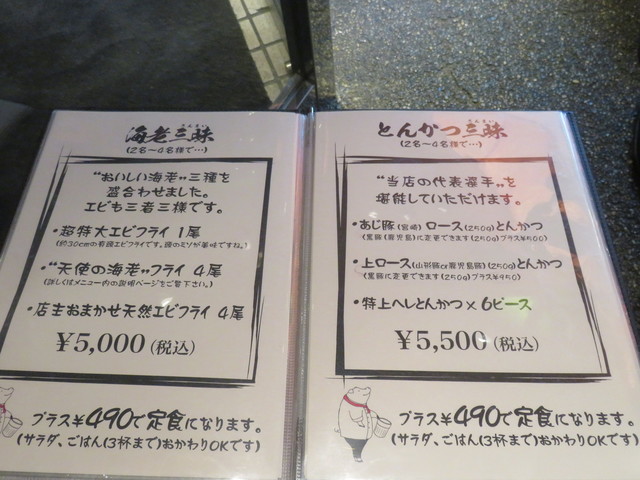 海老三昧
ざんまい
(2名〜4名様で…)
"おいしい海老"三種を
盛合わせました。
エビも三者三様です。
・超特大エビフライ 1尾
(約30cmの有頭エビフライです。頭のミソが美味ですね。)
・"天使の海老"フライ 4尾
(詳しくはメニュー内の説明ページをご覧下さい。)
・店主おまかせ天然エビフライ 4尾
¥5,000(税込)
プラス¥490で定食になります。
(サラダ、ごはん(3杯まで)おかわりOKです)
とんかつ三昧
ざんまい
(2名〜4名様で…)
"当店の代表選手"を
堪能していただけます。
・あじ豚(宮崎)ロース(250g)とんかつ
(黒豚(鹿児島)に変更できます(250g)プラス¥500)
・上ロース(山形豚or鹿児島豚)(250g)とんかつ
(黒豚に変更できます(250g)プラス¥950)
・特上ヘレとんかつ×6ピース
¥5,500(税込)
プラス¥490で定食になります。
(サラダ、ごはん(3杯まで)おかわりOKです)